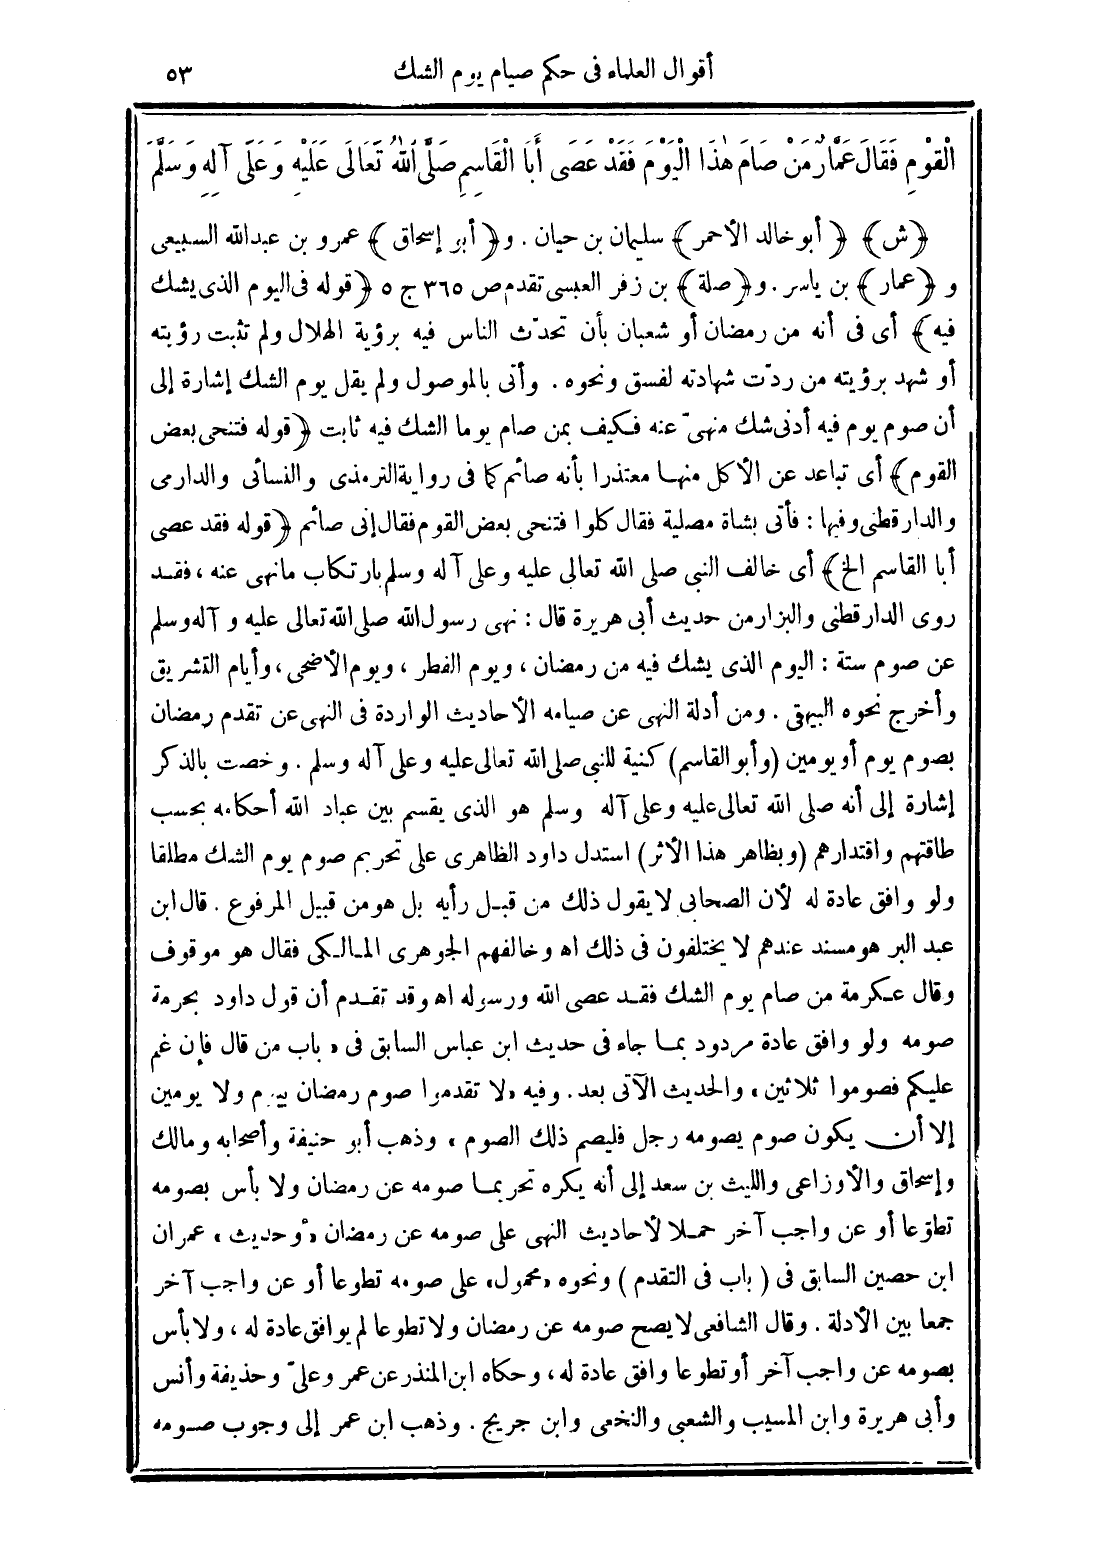 أقوال العلماء فى حكم صيام يوم الشك ٥٣
الْقَوْمِ فَقَالَ عَمَّارٌ مَنْ صَامَ هٰذَا الْيَوْمَ فَقَدْ عَصَى أَبَا الْقَاسِمِ صَلَّى اللهُ تَعَالَى عَلَيْهِ وَعَلَى آلِهِ وَسَلَّمَ
﴿ش﴾ ﴿أبو خالد الأحمر﴾ سليمان بن حيان . و﴿أبو إسحاق﴾ عمرو بن عبدالله السبيعى
و ﴿عمار﴾ بن ياسر . و﴿صلة﴾ بن زفر العبسى تقدم ص ٣٦٥ ج ٥ ﴿قوله فى اليوم الذى يشك
فيه﴾ أى فى أنه من رمضان أو شعبان بأن تحدّث الناس فيه برؤية الهلال ولم تثبت رؤيته
أو شهد برؤيته من ردّت شهادته لفسق ونحوه . وأتى بالموصول ولم يقل يوم الشك إشارة إلى
أن صوم يوم فيه أدنى شك منهىّ عنه فكيف بمن صام يوما الشك فيه ثابت ﴿قوله فتنحى بعض
القوم﴾ أى تباعد عن الأكل منها معتذرا بأنه صائم كما فى رواية الترمذى والنسائى والدارمى
والدارقطنى وفيها : فأتى بشاة مصلية فقال كلوا فتنحى بعض القوم فقال إنى صائم ﴿قوله فقد عصى
أبا القاسم الخ﴾ أى خالف النبى صلى الله تعالى عليه وعلى آله وسلم بارتكاب مانهى عنه ، فقد
روى الدارقطنى والبزار من حديث أبى هريرة قال : نهى رسول الله صلى الله تعالى عليه وآله وسلم
عن صوم ستة : اليوم الذى يشك فيه من رمضان ، ويوم الفطر ، ويوم الأضحى ، وأيام التشريق
وأخرج نحوه البيهقى . ومن أدلة النهى عن صيامه الأحاديث الواردة فى النهى عن تقدم رمضان
بصوم يوم أو يومين (وأبو القاسم) كنية للنبى صلى الله تعالى عليه وعلى آله وسلم . وخصت بالذكر
إشارة إلى أنه صلى الله تعالى عليه وعلى آله وسلم هو الذى يقسم بين عباد الله أحكامه بحسب
طاقتهم واقتدارهم (وبظاهر هذا الأثر) استدل داود الظاهرى على تحريم صوم يوم الشك مطلقا
ولو وافق عادة له لأن الصحابى لا يقول ذلك من قبل رأيه بل هو من قبيل المرفوع . قال ابن
عبد البر هو مسند عندهم لا يختلفون فى ذلك اه وخالفهم الجوهرى المالكى فقال هو موقوف
وقال عكرمة من صام يوم الشك فقد عصى الله ورسوله اه وقد تقدم أن قول داود بحرمة
صومه ولو وافق عادة مردود بما جاء فى حديث ابن عباس السابق فى « باب من قال فإن غم
عليكم فصوموا ثلاثين » والحديث الآتى بعد . وفيه «لا تقدموا صوم رمضان بيوم ولا يومين
إلا أن يكون صوم يصومه رجل فليصم ذلك الصوم » وذهب أبو حنيفة وأصحابه ومالك
وإسحاق والأوزاعى والليث بن سعد إلى أنه يكره تحريما صومه عن رمضان ولا بأس بصومه
تطوّعا أو عن واجب آخر حملا لأحاديث النهى على صومه عن رمضان «وحديث» عمران
ابن حصين السابق فى ( باب فى التقدم ) ونحوه «محمول» على صومه تطوعا أو عن واجب آخر
جمعا بين الأدلة . وقال الشافعى لا يصح صومه عن رمضان ولا تطوعا لم يوافق عادة له ، ولا بأس
بصومه عن واجب آخر أو تطوعا وافق عادة له ، وحكاه ابن المنذر عن عمر وعلىّ وحذيفة وأنس
وأبى هريرة وابن المسيب والشعبى والنخعى وابن جريج . وذهب ابن عمر إلى وجوب صومه